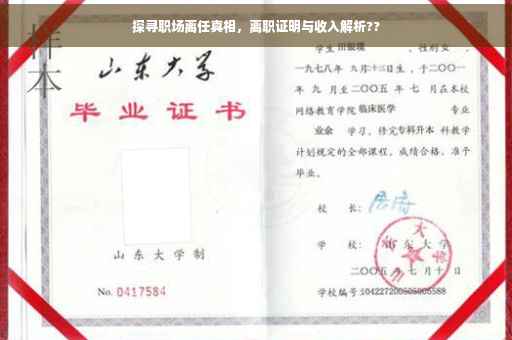 探寻职场离任真相，离职证明与收入解析??
样本
山东大学
毕业证书
山东大学制
No. 0417584
学生 田银瑞 ，性别 女 ，
一九七八年 九月十三日生，于二〇〇一
年 九 月至二〇〇五 年 七 月在本校
网络教育学院 临床医学 专业
业余 学习，修完 专科升本 科教学
计划规定的全部课程，成绩合格，准予
毕业。
校 长：
学 校：山东大学
二〇〇五 年 七 月 十 日
学校编号：104227200505005588